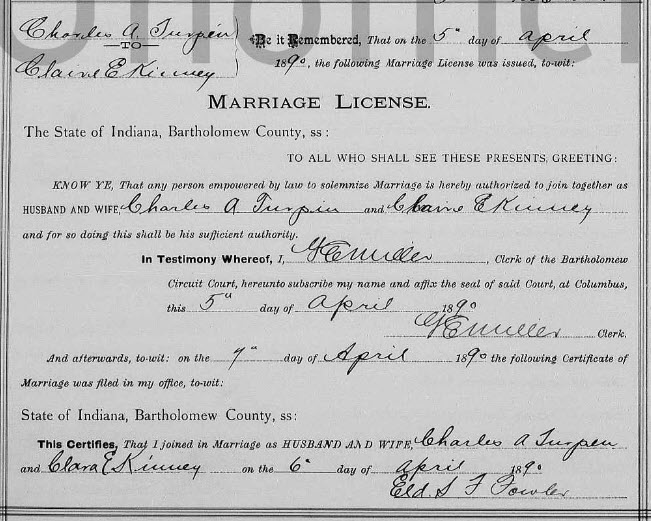 Charles A. Turpen
—TO—
Claire E Kinney
Be it Remembered, That on the 5" day of April
1890, the following Marriage License was issued, to-wit:
MARRIAGE LICENSE.
The State of Indiana, Bartholomew County, ss:
TO ALL WHO SHALL SEE THESE PRESENTS, GREETING:
KNOW YE, That any person empowered by law to solemnize Marriage is hereby authorized to join together as
HUSBAND AND WIFE, Charles A Turpin and Claire E Kinney
and for so doing this shall be his sufficient authority.
In Testimony Whereof, I, Miller, Clerk of the Bartholomew
Circuit Court, hereunto subscribe my name and affix the seal of said Court, at Columbus,
this 5" day of April 1890
Miller Clerk.
And afterwards, to-wit: on the 7" day of April 1890 the following Certificate of
Marriage was filed in my office, to-wit:
State of Indiana, Bartholomew County, ss:
This Certifies, That I joined in Marriage as HUSBAND AND WIFE, Charles A Turpen
and Clara E Kinney on the 6" day of April 1890
Eld. S F Fowler